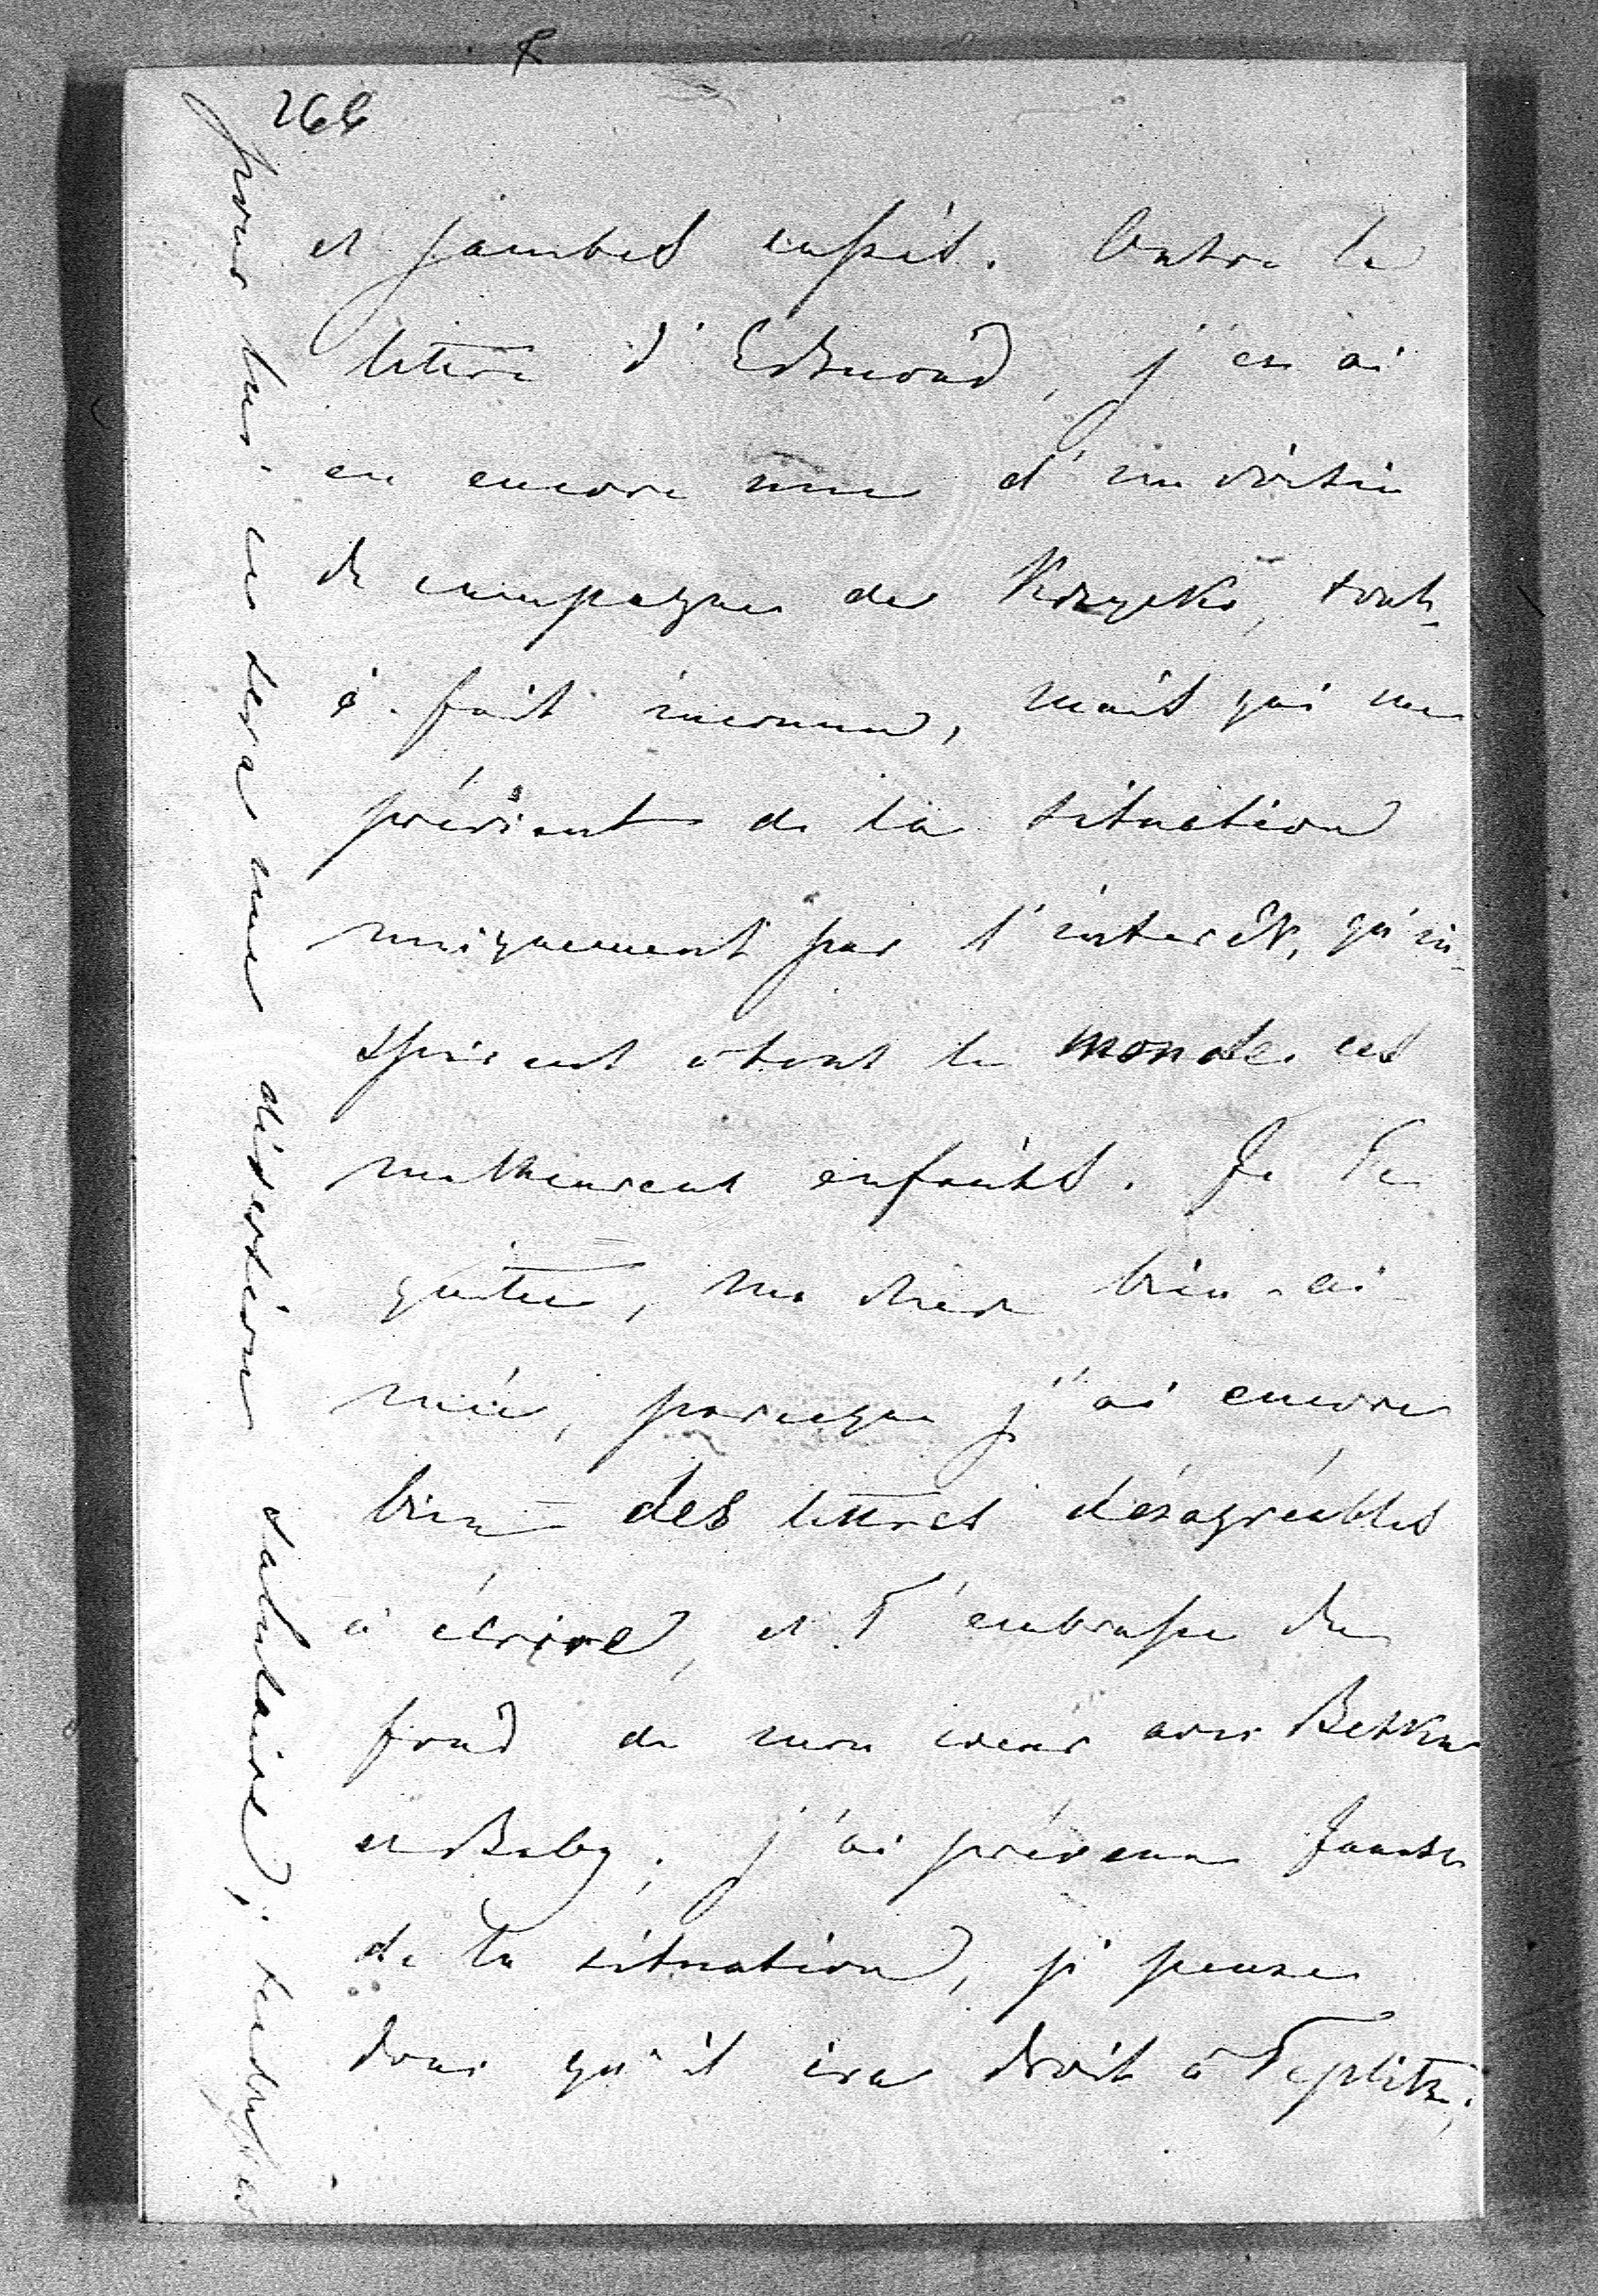 266
et jambes cassés. Outre la
lettre d'Edmond, j'en ai
eu encore une d'un voisin
de campagne de Krzycki, tout-
à-fait inconnu, mais qui me
prévient de la situation
uniquement par l'interêt, qu'in-
spirent à tout le monde ces
malheureux enfants. Je Te
quitte, ma chère bien-ai-
mée, parceque j'ai encore
bien des lettres désagréables
à écrire, et T'embrasse du
fond de mon coeur avec
et Baby; j'ai prévenu
de Ta situation, je pense
donc qu'il ira droit à Teplitz,
pour lui ce sera une diversion salutaire;